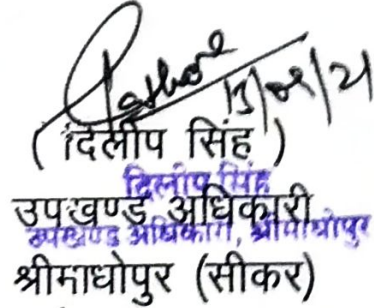 13/08/21
( दिलीप सिंह )
दिलीप सिंह
उपखण्ड अधिकारी
उपखण्ड अधिकारी, श्रीमाधोपुर
श्रीमाधोपुर (सीकर)